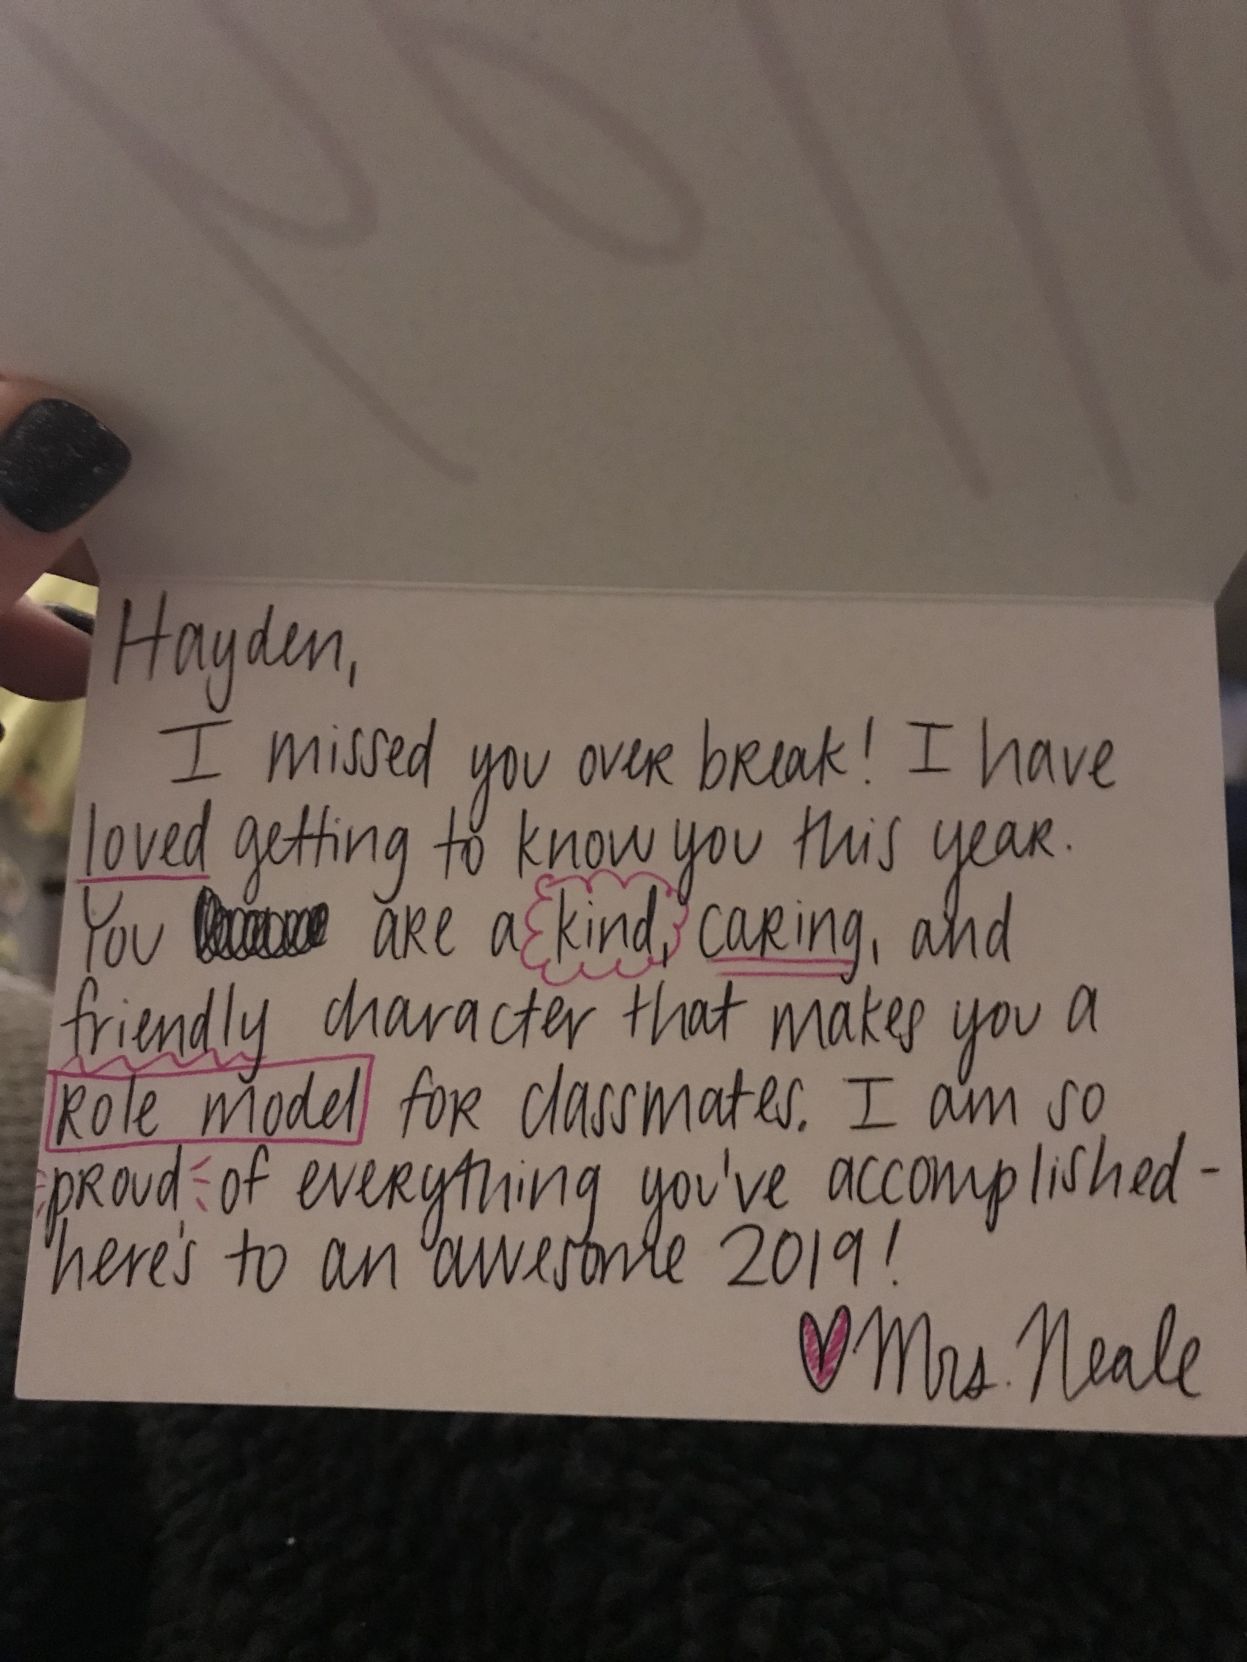 Hayden,
I missed you over break! I have
loved getting to know you this year.
You are a kind, caring, and
friendly character that makes you a
role model for classmates. I am so
proud of everything you've accomplished -
here's to an awesome 2019!
♥ Mrs. Neale